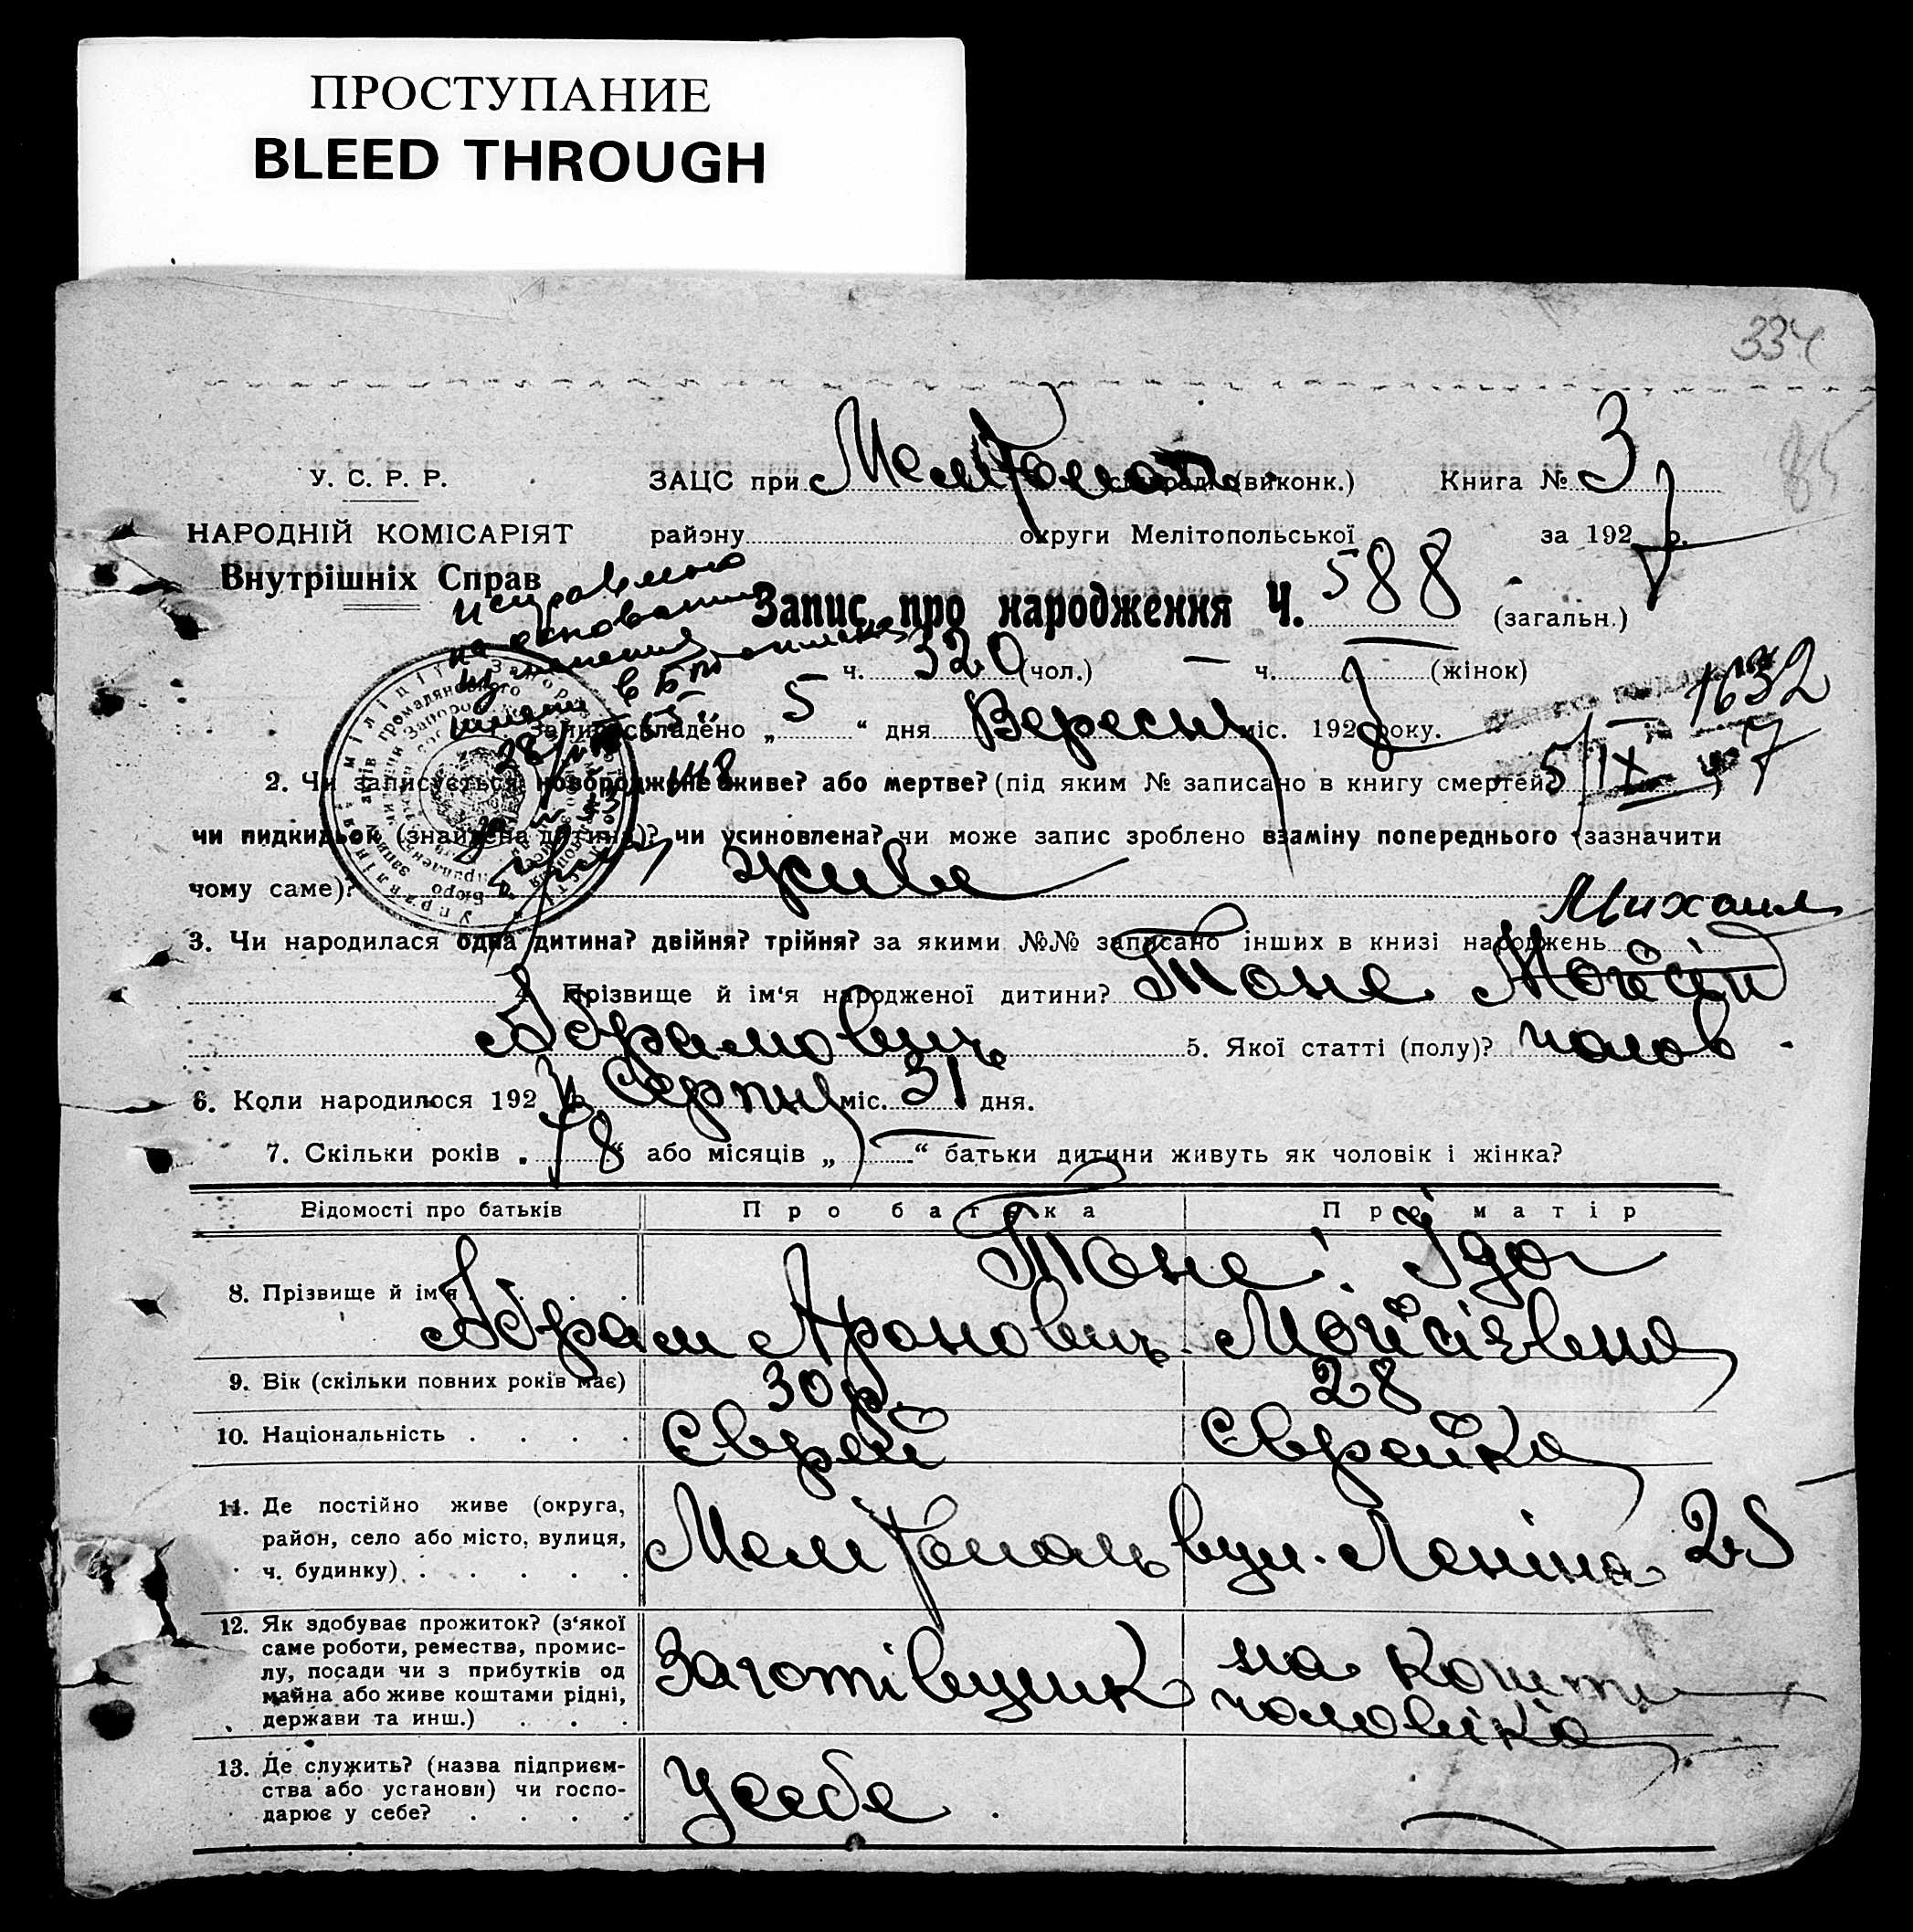 ПРОСТУПАНИЕ
BLEED THROUGH
334
85
У. С. Р. Р.
ЗАЦС при Мелітопол. (виконк.) Книга № 3
НАРОДНІЙ КОМІСАРІЯТ
району округи Мелітопольської за 1927 р.
Внутрішніх Справ
исправлено
на основании
изменения
имени
Запис про народження Ч. 588 (загальн.)
ч. 320 (чол.) — ч. (жінок)
1632
Запис складено „ 5 “ дня Вересня міс. 1927 року.
5/IX 27
2. Чи записується новороджене живе? або мертве? (під яким № записано в книгу смертей
чи пидкидьок (знайдена дитина)? чи усиновлена? чи може запис зроблено взаміну попереднього (зазначити
чому саме)? живе
Михаил
3. Чи народилася одна дитина? двійня? трійня? за якими №№ записано інших в книзі народжень
4. Прізвище й ім‘я народженої дитини? Тоне Мойсій
Абрамович 5. Якої статті (полу)? чолов.
6. Коли народилося 1927 Серпня міс. 31 дня.
7. Скільки років „ 8 “ або місяців „ — “ батьки дитини живуть як чоловік і жінка?
Відомості про батьків
Про батька
Про матір
8. Прізвище й ім‘я
Тоне Абрам Аронович
Ідо Мойсієвна
9. Вік (скільки повних років має)
30 р.
28
10. Національність . . . .
Єврей
Єврейка
11. Де постійно живе (округа,
район, село або місто, вулиця,
ч. будинку) . . . . .
Мелітополь вул. Леніна 25
12. Як здобуває прожиток? (з‘якої
саме роботи, ремества, промис-
лу, посади чи з прибутків од
майна або живе коштами рідні,
держави та инш.) . . .
Заготівщик
на кошти
чоловіка
13. Де служить? (назва підприєм-
ства або установи) чи госпо-
дарює у себе? . . . .
У себе